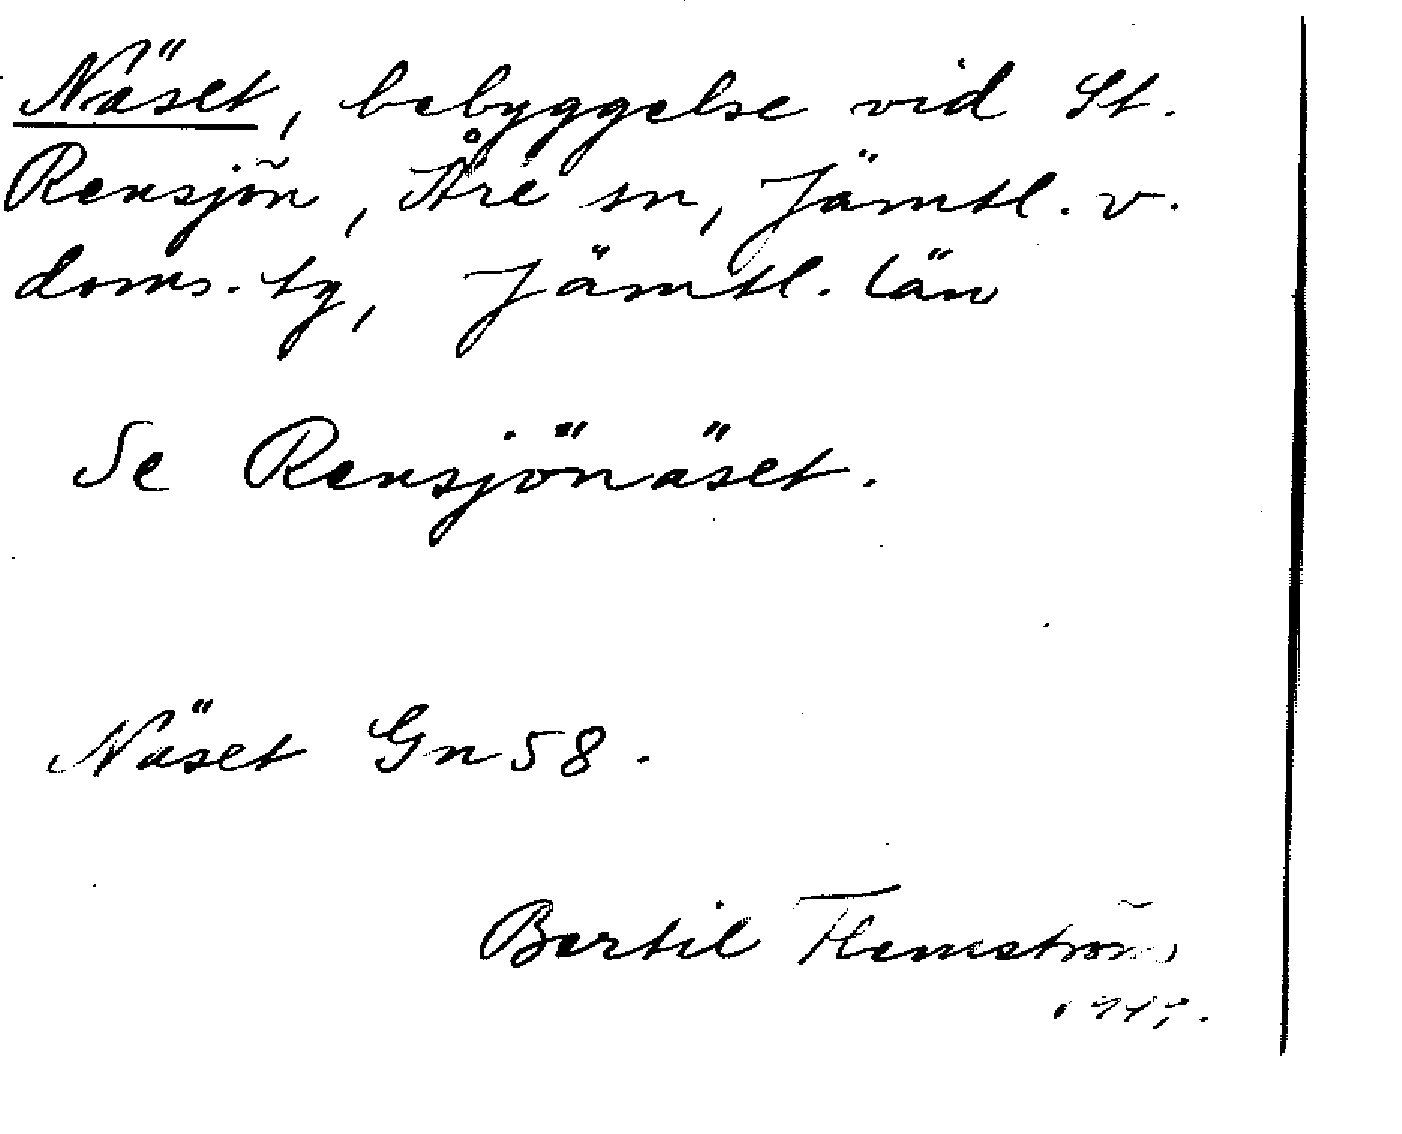 Näset, bebyggelse vid St.
Rensjön, Åre sn, Jämtl. v.
doms. tg, Jämtl. län
Se Rensjönäset.
Näset Gn 58.
Bertil Flemström